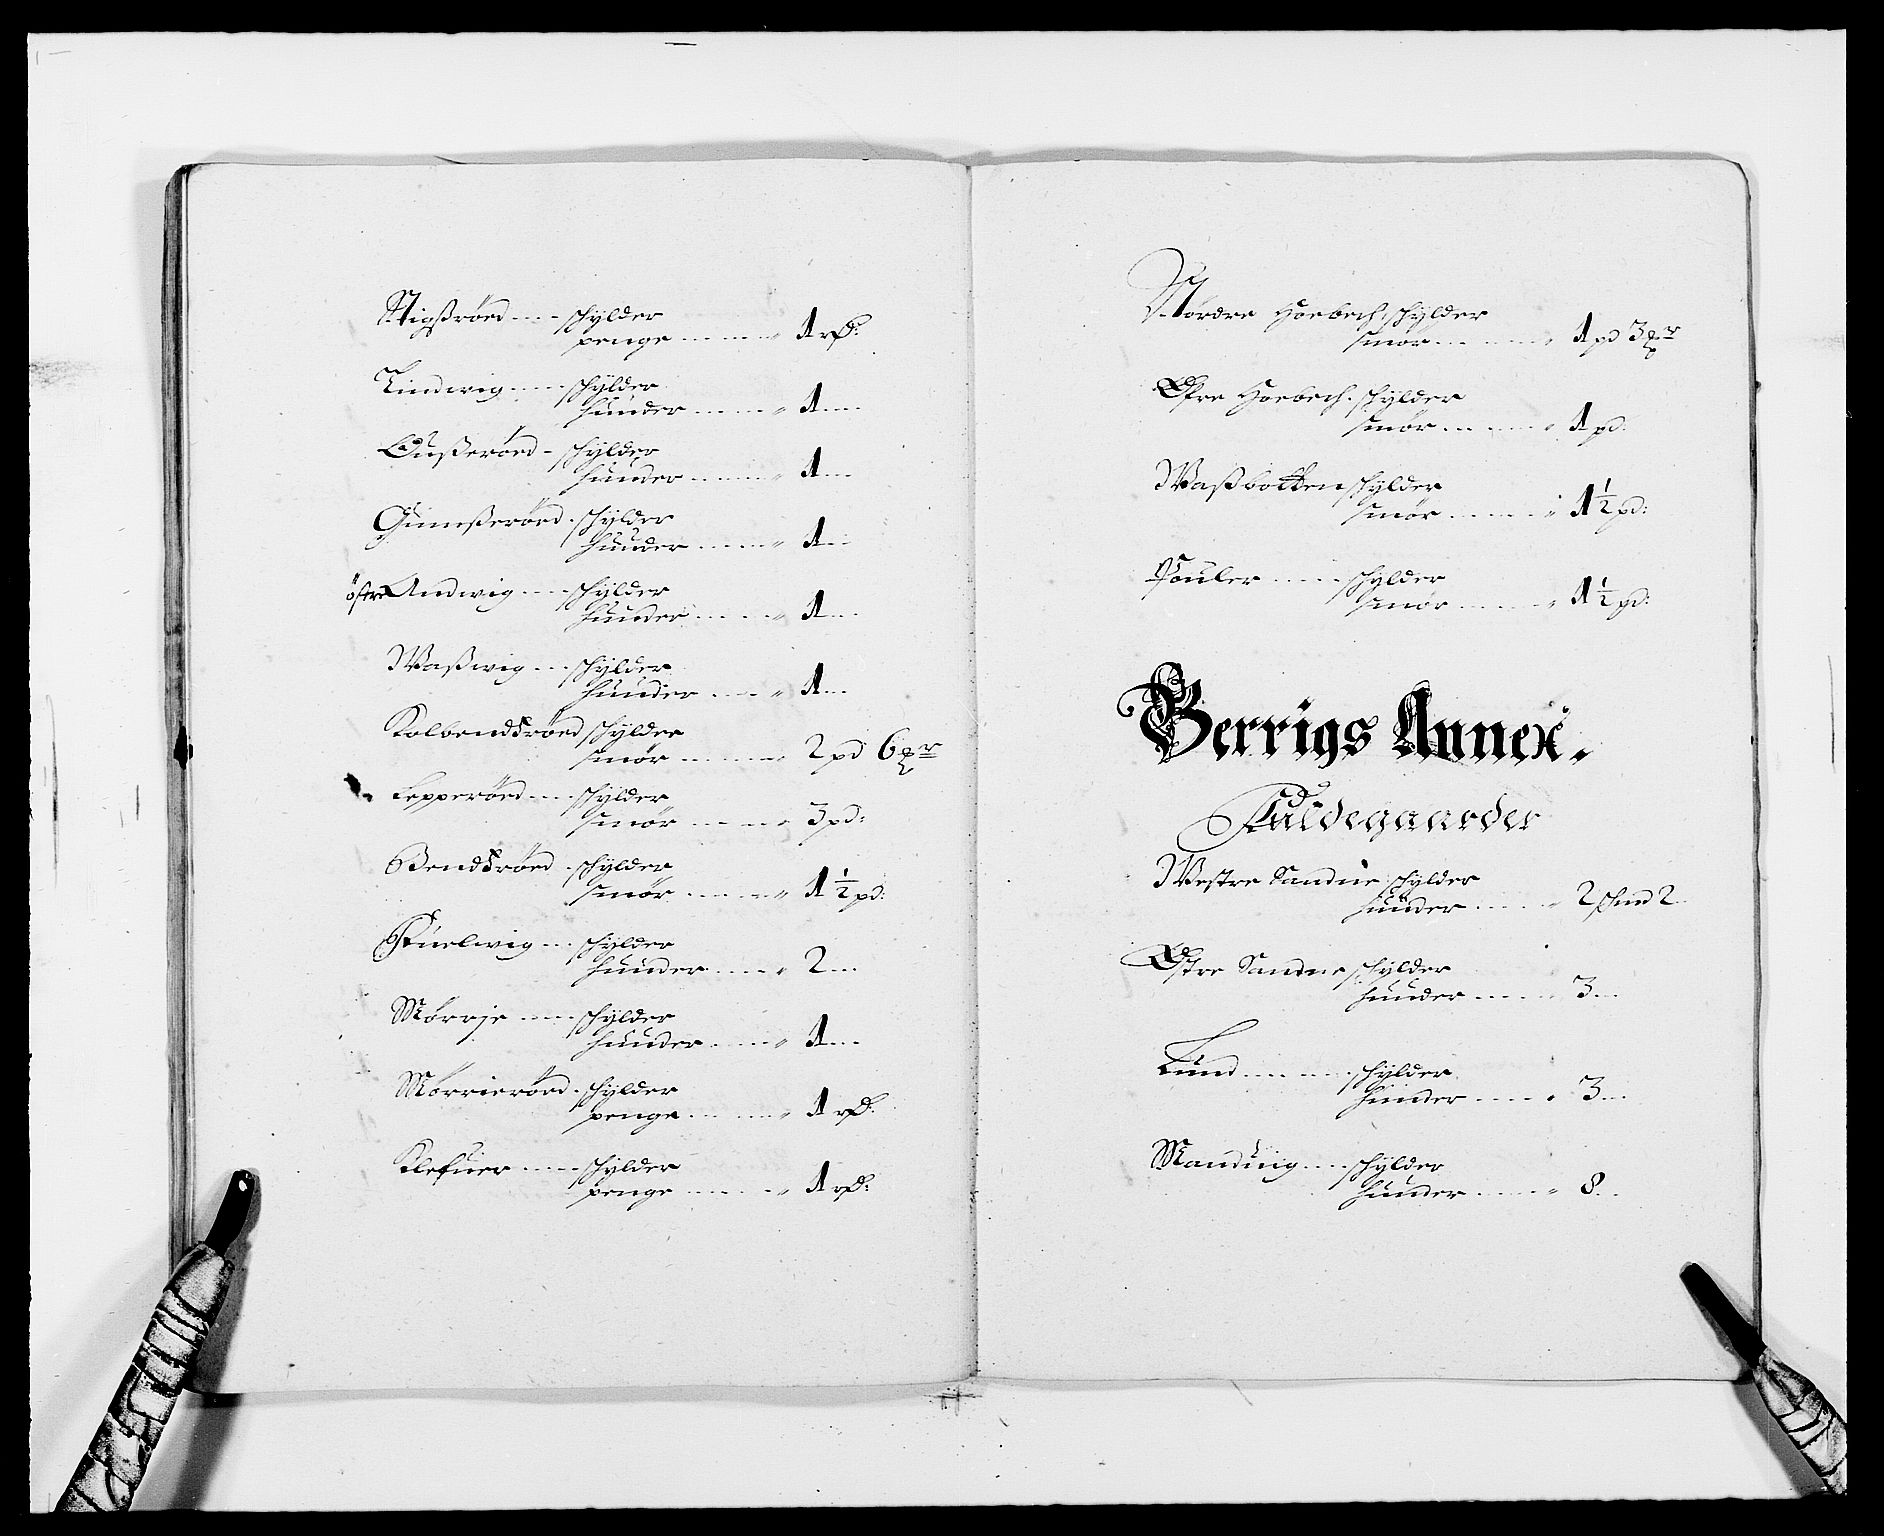 Stigßröed - - - schylder
penge - - - - - 1 rxd:
Lindwig - - - schylder
huuder - - - - 1 - -
Oußeröed - schylder
huuder - - - - 1 - -
Gunnßeröed - schylder
huuder - - - - 1 - -
öster Andwig - - - schylder
huuder - - - - 1 - -
Waßwig - - - schylder
huuder - - - - 1 - -
Kolbendtröed schylder
smör - - - - 2 pd 6 mr
Lepperöed - - - schylder
smör - - - - 3 pd:
Bendtröed - schylder
smör - - - - 1½ pd:
huelwig - - - schylder
huuder - - - - 2 - -
Mörrje - - - schylder
huuder - - - - 1 - -
Mörrieröed - schylder
penge - - - - 1 rxd:
Klefuer - - - schylder
penge - - - - 1 rxd:
Nordre Hoebech schylder
smör - - - - 1 pd 3 mr
Øfre Hoebech - schylder
smör - - - - 1 pd:
Waßbotten schylder
smör - - - - 1½ pd:
Fouler - - - schylder
smör - - - - 1½ pd:
Berrigs Annex.
Fuldegaarder
Westre Sandne schylder
huuder - - - - 2 schind 2 -
Østre Sandne schylder
huuder - - - - 3 - -
Lund - - - - schylder
huuder - - - - 3 - -
Manduig - - - schylder
huuder - - - - 8 - -